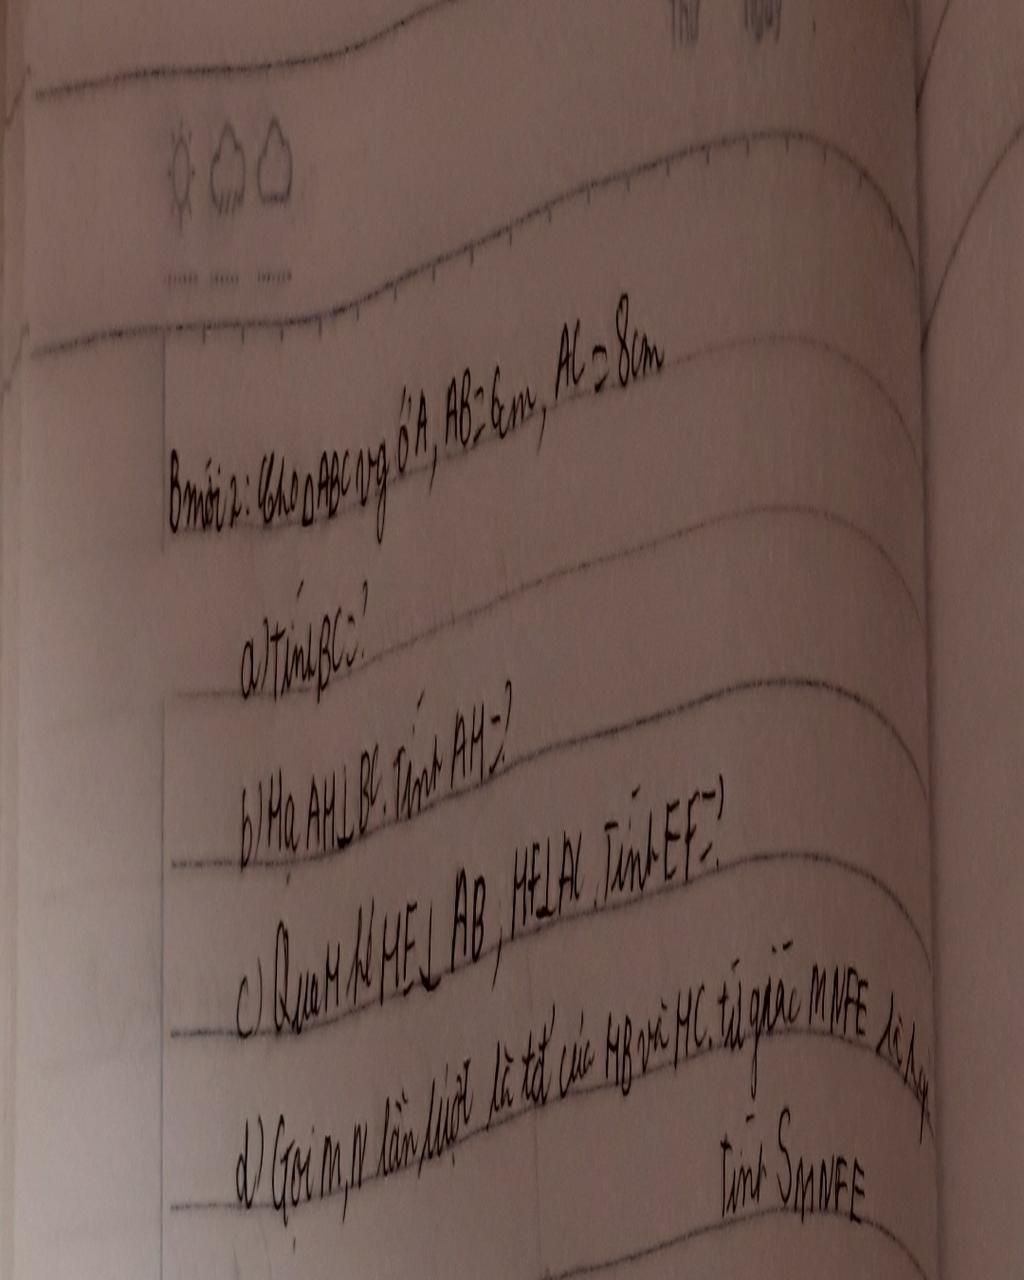 Thứ Ngày
B mới 2: Cho △ABC vg ở A, AB = 6cm, AC = 8cm
a) Tính BC = ?
b) Hạ AH ⊥ BC. Tính AH = ?
c) Qua H kẻ HE ⊥ AB, HF ⊥ AC. Tính EF = ?
d) Gọi M, N lần lượt là tđ của HB và HC. tứ giác MNFE là h
Tính SMNFE